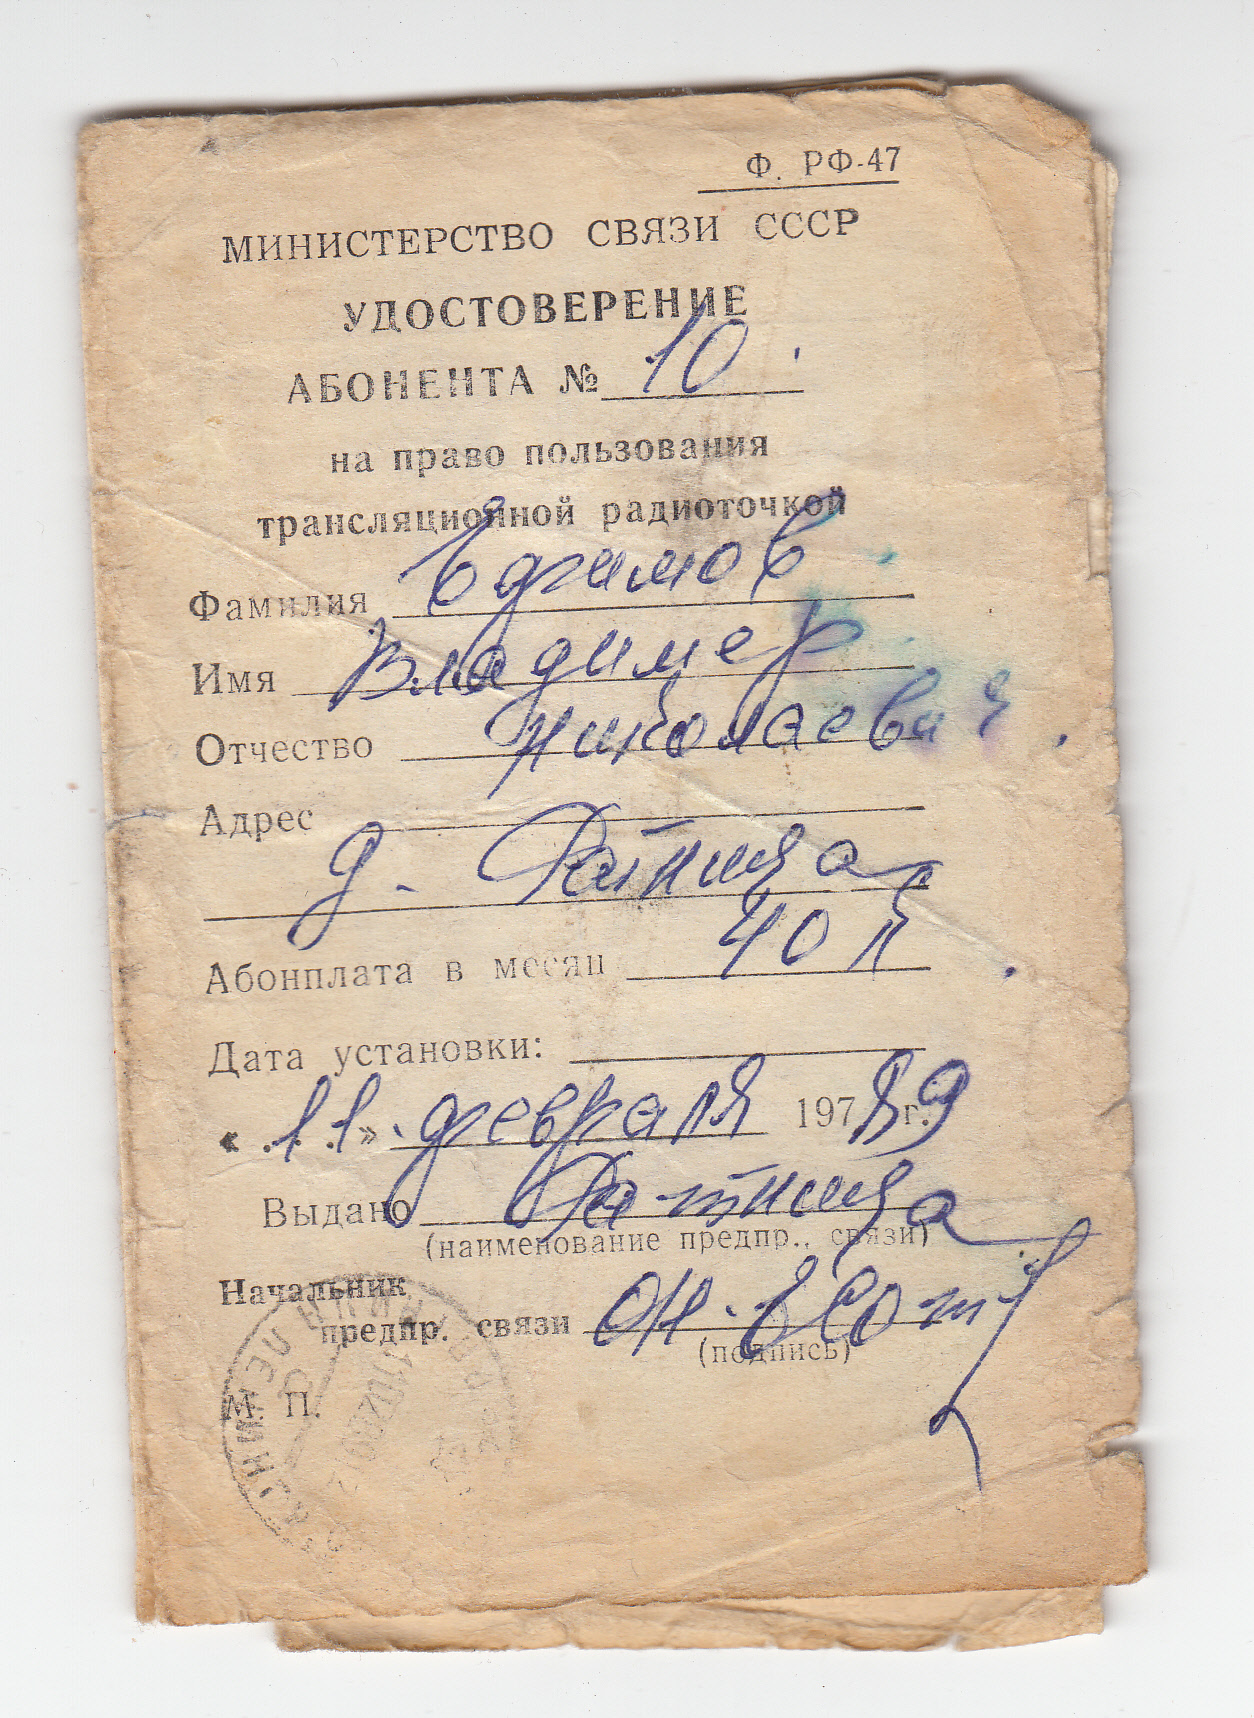 Ф. РФ-47
МИНИСТЕРСТВО СВЯЗИ СССР
УДОСТОВЕРЕНИЕ
АБОНЕНТА № 10
на право пользования
трансляционной радиоточкой
Фамилия Ефимов
Имя Владимер
Отчество Николаевич
Адрес
д. Ратница
Абонплата в месяц 40 к
Дата установки:
« 11 » февраля 197 г. 9
Выдано Ратница
(наименование предпр., связи)
Начальник
предпр. связи
(подпись)
М. П.